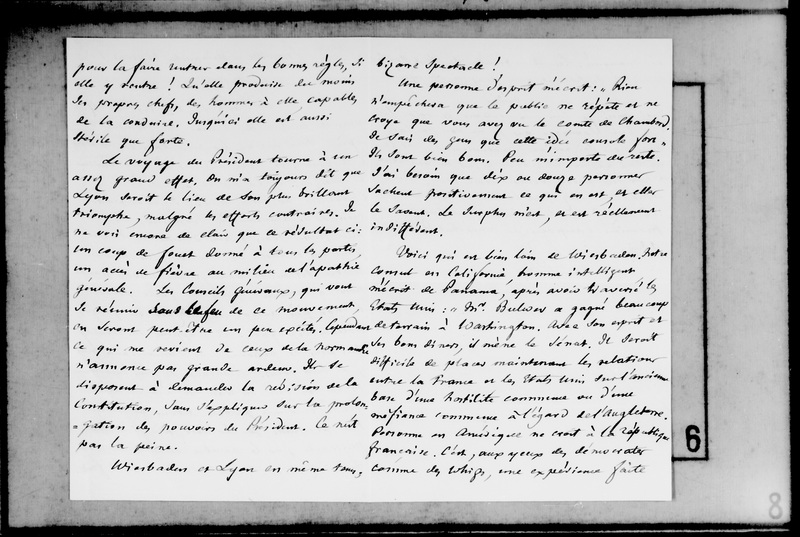 pour la faire rentrer dans les bonnes règles, si
elle y rentre ! Qu'elle produise du moins
ses propres chefs, des hommes à elle capables
de la conduire. Jusqu'ici elle est aussi
stérile que forte.
Le voyage du Président tourne à un
assez grand effet. On m'a toujours dit que
Lyon seroit le lieu de son plus brillant
triomphe, malgré les efforts contraires. Je
ne vois encore de clair que ce résultat ci :
un coup de fouet donné à tous les partis,
un accès de fièvre au milieu de l'apathie
générale. Les Conseils généraux, qui vont
se réunir sous le feu de ce mouvement,
en seront peut-être un peu excités. Cependant
ce qui me revient de ceux de la Normandie
n'annonce pas grande ardeur. Ils se
disposent à demander la révision de la
Constitution, sans s'expliquer sur la prolon-
=gation des pouvoirs du Président. Ce n'est
pas la peine.
Wiesbaden et Lyon en même tems,
bizarre spectacle !
Une personne d'esprit m'écrit : " Rien
n'empêchera que le public ne répète et ne
croye que vous avez vu le comte de Chambord.
Je sais des gens que cette idée console fort "
Ils sont bien bons. Peu m'importe du reste.
J'ai besoin que dix ou douze personnes
sachent positivement ce qui en est, et elles
le savent. Le surplus m'est, et est réellement
indifférent.
Voici qui est bien loin de Wiesbaden. Notre
consul en Californie, homme intelligent
m'écrit de Panama, après avoir traversé les
Etats Unis : " Mr. Bulwer a gagné beaucoup
de terrain à Washington. Avec son esprit et
ses bons diners, il mène le Sénat. Il seroit
difficile de placer maintenant les relations
entre la France et les Etats Unis sur l'ancienne
base d'une hostilité commune ou d'une
méfiance commune à l'égard de l'Angleterre.
Personne en Amérique ne croit à la République
française. C'est, aux yeux des démocrates
comme des whigs, une expérience faite
6
8